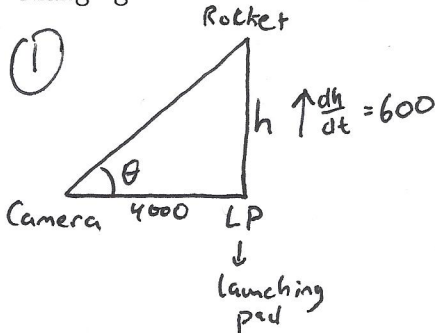 ①
Rocket
h ↑ dh/dt = 600
θ
Camera 4000 LP
↓
launching
pad